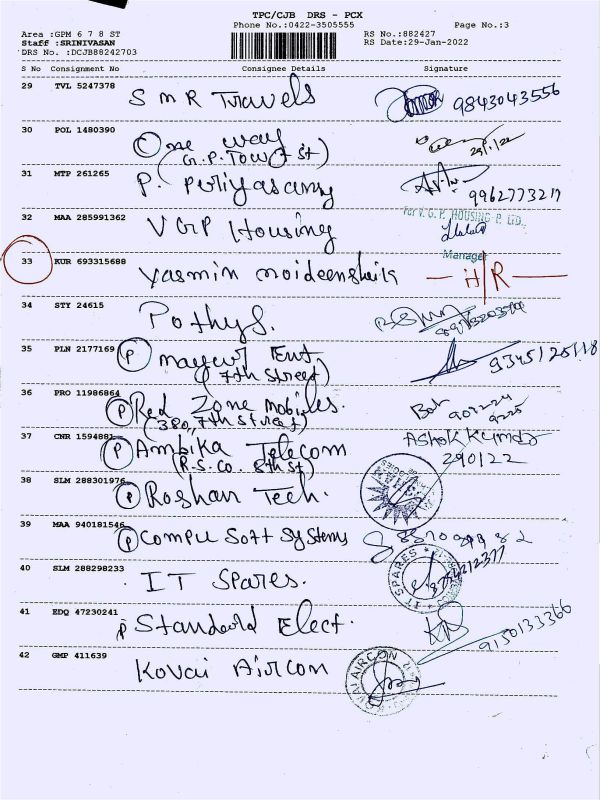 TPC/CJB DRS - PCX
Phone No.:0422-3505555 Page No.:3
Area :GPM 6 7 8 ST RS No.:882427
Staff :SRINIVASAN RS Date:29-Jan-2022
DRS No. :DCJB88242703
S No Consignment No Consignee Details Signature
29 TVL 5247378 SMR Travels 9843043556
30 POL 1480390 One way
(G.P. Tower st)
31 MTP 261265 P. Periyasamy 9962773217
32 MAA 285991362 VGP Housing
For V. G. P. HOUSING P. LTD.,
Manager
33 KUR 693315688 Yasmin moideensheik H/R
34 STY 24615 Pothys.
35 PLN 2177169 (P) mayur Ent 9345125118
(7th street)
36 PRO 11986864 (P) Red Zone mobiles.
(380, 7th street)
37 CNR 1594881 (P) Ambika Telecom Ashok Kumar
(R.S. Co. 8th st) 290122
38 SLM 288301976 (P) Roshan Tech.
39 MAA 940181546 (P) Compu Soft Systems
40 SLM 288298233 IT Spares.
IT SPARES
41 EDQ 47230241 P Standard Elect. 9150133366
42 GMP 411639 Kovai Aircon
KOVAI AIRCON